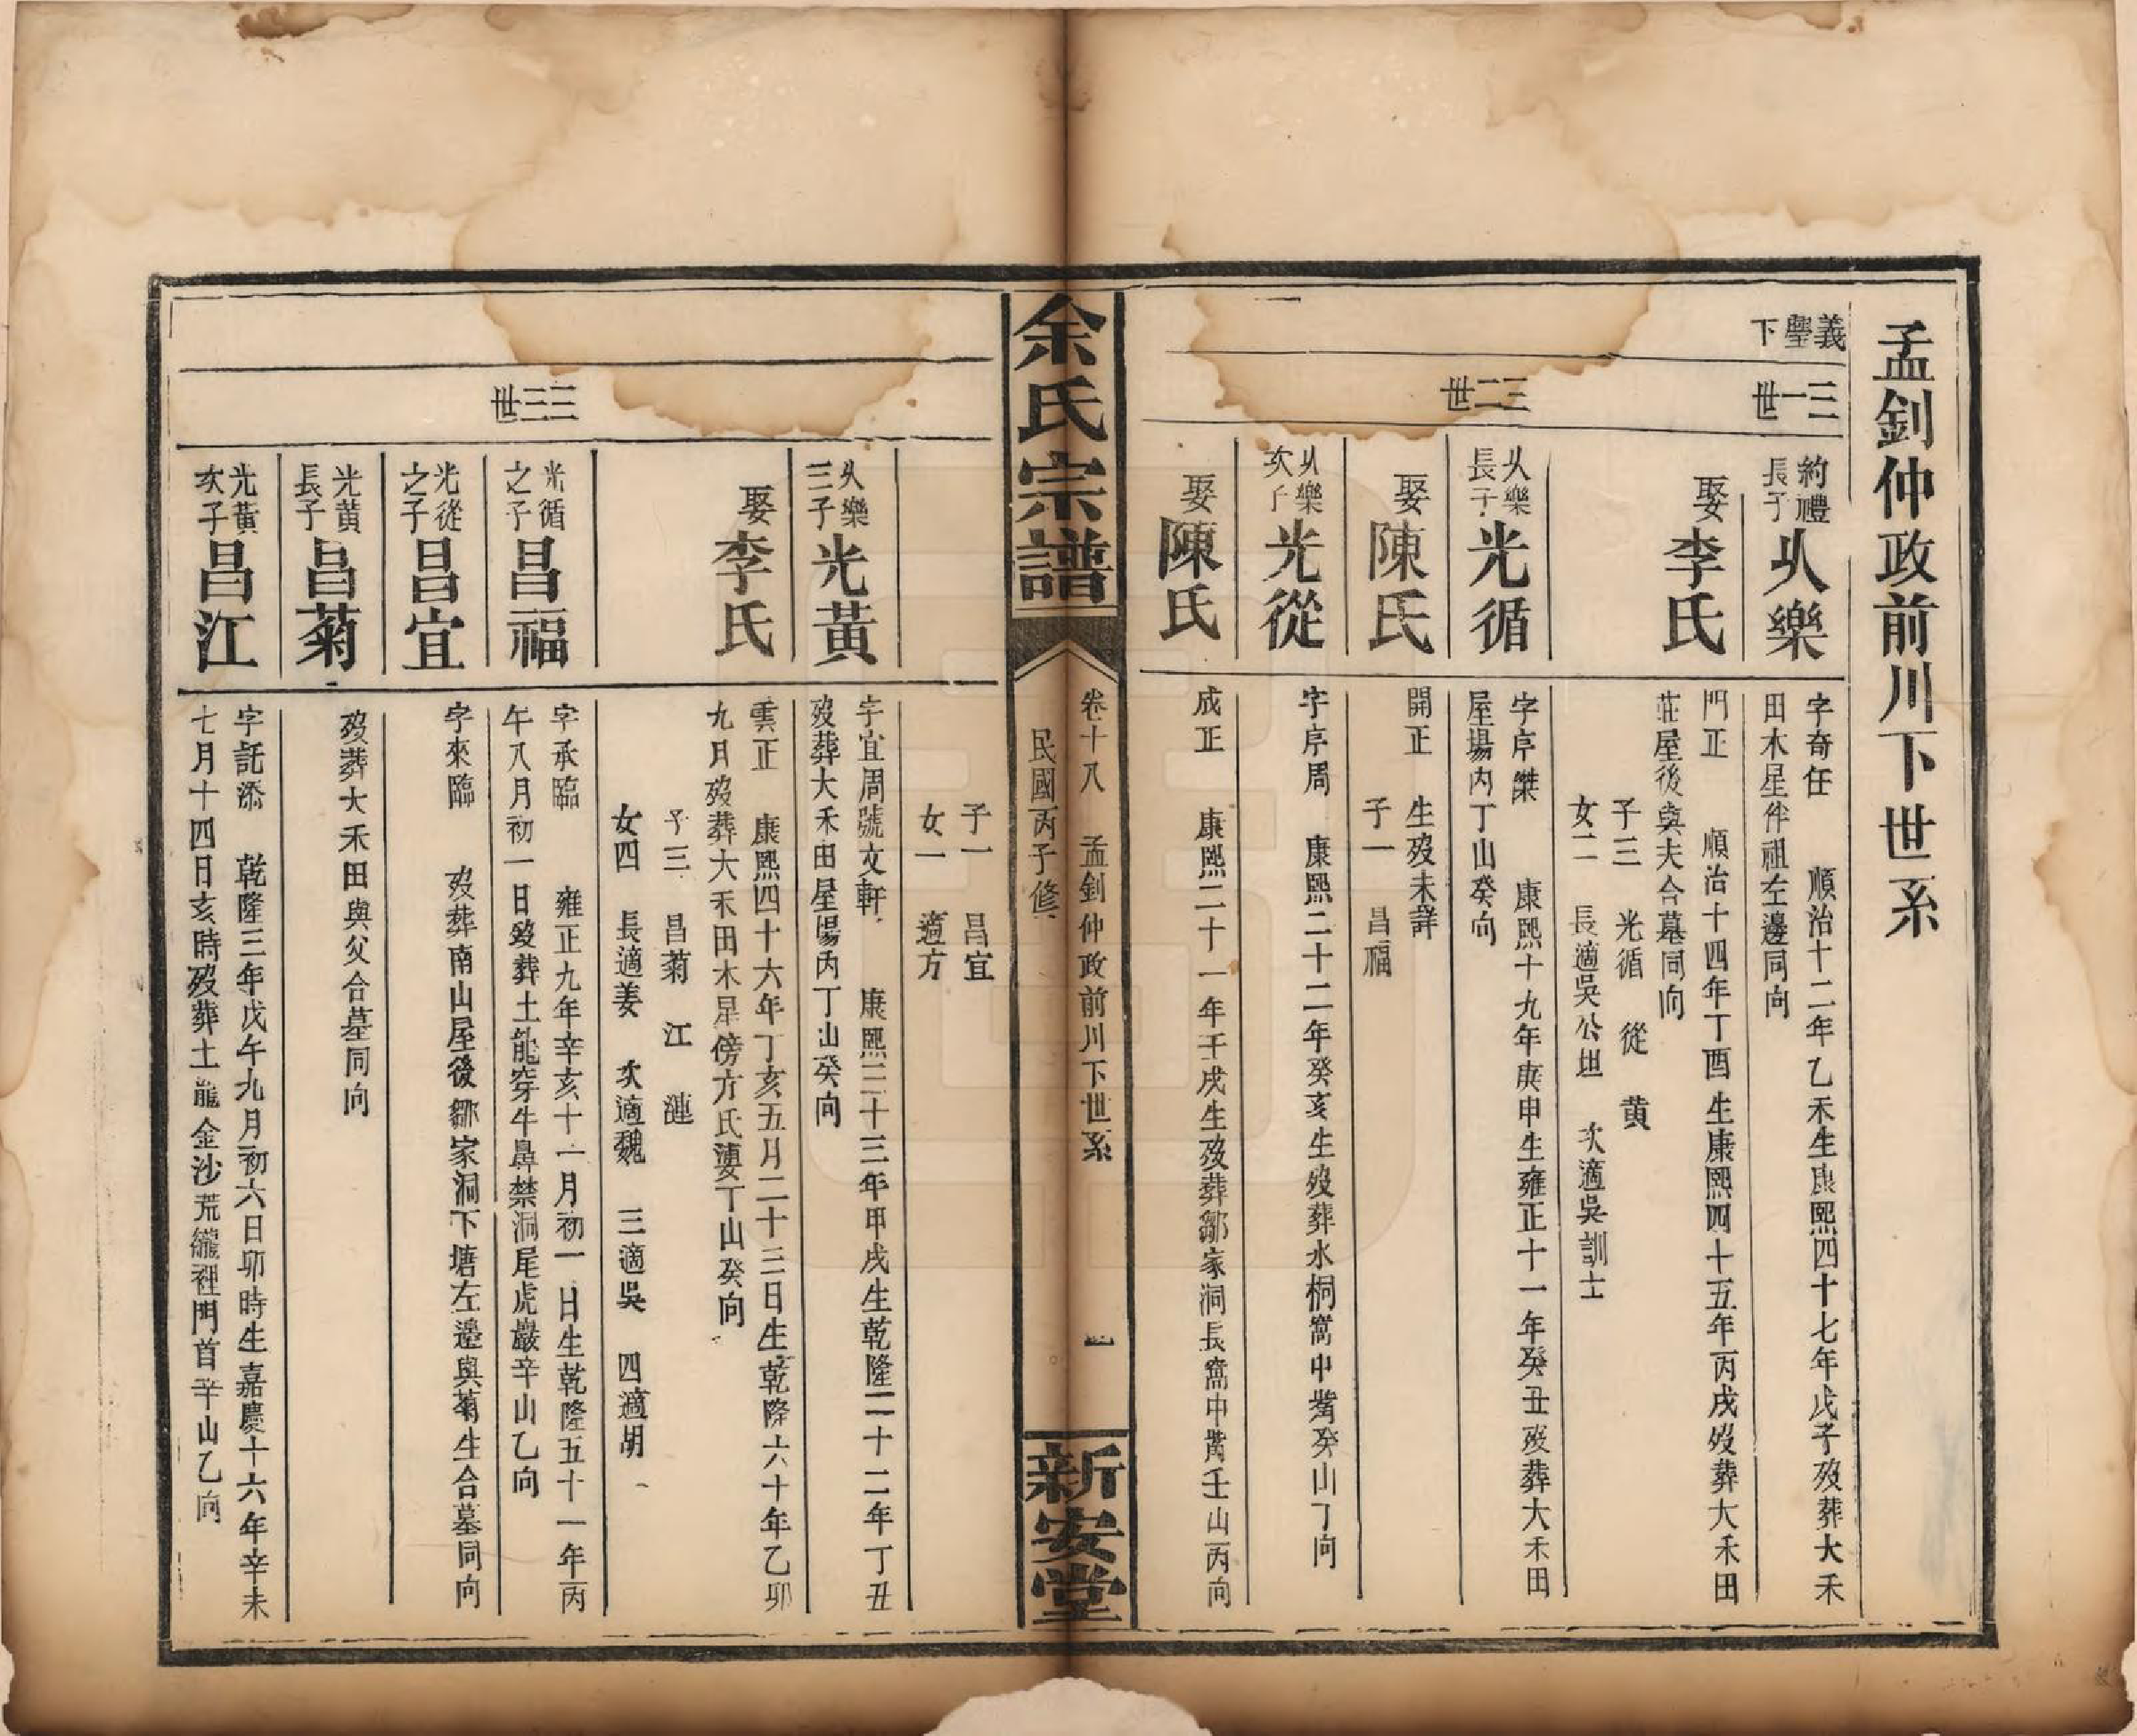 孟釗仲政前川下世系
義璺下
三一世
約禮長子
㐺樂
字奇任 順治十二年乙禾生康熙四十七年戊子歿葬大禾
田木星伴祖左邊同向
娶李氏
門正 順治十四年丁酉生康熙四十五年丙戌歿葬大禾田
莊屋後與夫合墓同向
子三 光循 從 黄
女二 長適吳公坦 次適吳訓士
三二世
㐺樂長子
光循
字序桀 康熙十九年庚申生雍正十一年癸丑歿葬大禾田
屋場内丁山癸向
娶陳氏
開正 生歿未詳
子一 昌福
㐺樂次子
光從
字序周 康熙二十二年癸亥生歿葬水桐窩中嘴癸山丁向
娶陳氏
成正 康熙二十一年壬戌生歿葬鄒家洞長窩中嘴壬山丙向
余氏宗譜
卷十八 孟釗仲政前川下世系 一
民國丙子修
新安堂
子一 昌宜
女一 適方
㐺樂三子
光黃
字宜周號文軒 康熙三十三年甲戌生乾隆二十二年丁丑
歿葬大禾田屋場丙丁山癸向
娶李氏
雲正 康熙四十六年丁亥五月二十三日生乾隆六十年乙卯
九月歿葬大禾田木星傍方氏凄丁山癸向
子三 昌菊 江 漣
女四 長適姜 次適魏 三適吳 四適胡
三三世
光循之子
昌福
字承臨 雍正九年辛亥十一月初一日生乾隆五十一年丙
午八月初一日歿葬土龍穿牛鼻禁洞尾虎巖辛山乙向
光從之子
昌宜
字來臨 歿葬南山屋後鄒家洞下塘左邊與菊生合墓同向
光黃長子
昌菊
歿葬大禾田與父合墓同向
光黃次子
昌江
字託添 乾隆三年戊午九月初六日卯時生嘉慶十六年辛未
七月十四日亥時歿葬土龍金沙荒巃裡門首辛山乙向